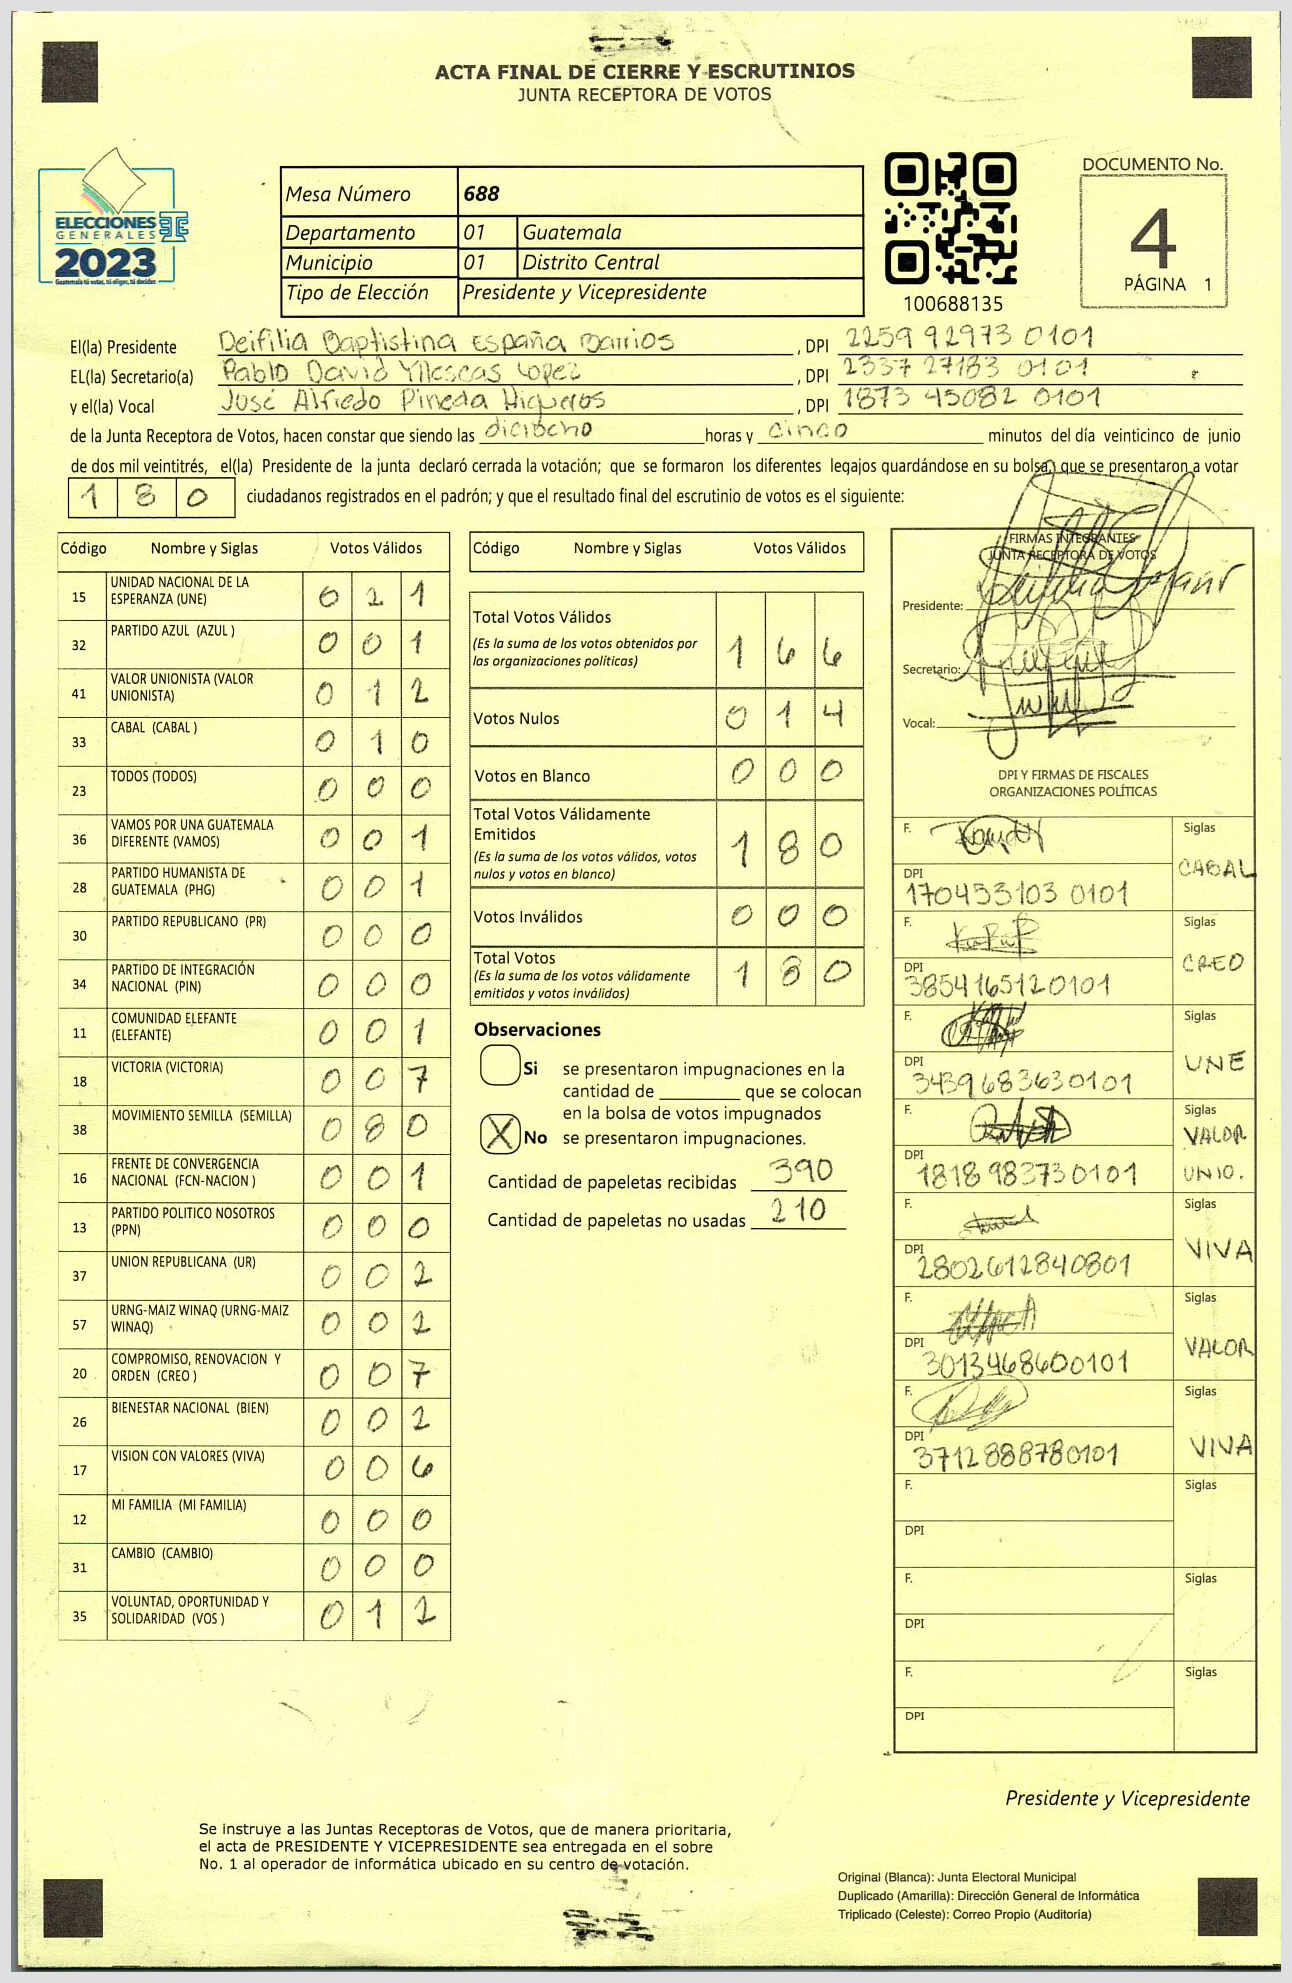 ACTA FINAL DE CIERRE Y ESCRUTINIOS
JUNTA RECEPTORA DE VOTOS
ELECCIONES
GENERALES
2023
Guatemala tú votas, tú eliges, tú decides
Mesa Número 688
Departamento 01 Guatemala
Municipio 01 Distrito Central
Tipo de Elección Presidente y Vicepresidente
100688135
DOCUMENTO No.
4
PÁGINA 1
El(la) Presidente Deifilia Baptistina España Barrios , DPI 2259 92973 0101
EL(la) Secretario(a) Pablo David Yllescas Lopez , DPI 2337 27183 0101
y el(la) Vocal José Alfredo Pineda Higueros , DPI 1873 45082 0101
de la Junta Receptora de Votos, hacen constar que siendo las dieciocho horas y cinco minutos del día veinticinco de junio
de dos mil veintitrés, el(la) Presidente de la junta declaró cerrada la votación; que se formaron los diferentes legajos guardándose en su bolsa, que se presentaron a votar
180 ciudadanos registrados en el padrón; y que el resultado final del escrutinio de votos es el siguiente:
Código Nombre y Siglas Votos Válidos
15 UNIDAD NACIONAL DE LA ESPERANZA (UNE) 021
32 PARTIDO AZUL (AZUL ) 001
41 VALOR UNIONISTA (VALOR UNIONISTA) 012
33 CABAL (CABAL ) 010
23 TODOS (TODOS) 000
36 VAMOS POR UNA GUATEMALA DIFERENTE (VAMOS) 001
28 PARTIDO HUMANISTA DE GUATEMALA (PHG) 001
30 PARTIDO REPUBLICANO (PR) 000
34 PARTIDO DE INTEGRACIÓN NACIONAL (PIN) 000
11 COMUNIDAD ELEFANTE (ELEFANTE) 001
18 VICTORIA (VICTORIA) 007
38 MOVIMIENTO SEMILLA (SEMILLA) 080
16 FRENTE DE CONVERGENCIA NACIONAL (FCN-NACION ) 001
13 PARTIDO POLITICO NOSOTROS (PPN) 000
37 UNION REPUBLICANA (UR) 002
57 URNG-MAIZ WINAQ (URNG-MAIZ WINAQ) 002
20 COMPROMISO, RENOVACION Y ORDEN (CREO ) 007
26 BIENESTAR NACIONAL (BIEN) 002
17 VISION CON VALORES (VIVA) 006
12 MI FAMILIA (MI FAMILIA) 000
31 CAMBIO (CAMBIO) 000
35 VOLUNTAD, OPORTUNIDAD Y SOLIDARIDAD (VOS ) 012
Código Nombre y Siglas Votos Válidos
Total Votos Válidos 166
(Es la suma de los votos obtenidos por
las organizaciones políticas)
Votos Nulos 014
Votos en Blanco 000
Total Votos Válidamente
Emitidos 180
(Es la suma de los votos válidos, votos
nulos y votos en blanco)
Votos Inválidos 000
Total Votos 180
(Es la suma de los votos válidamente
emitidos y votos inválidos)
Observaciones
Si se presentaron impugnaciones en la
cantidad de ________ que se colocan
en la bolsa de votos impugnados
X No se presentaron impugnaciones.
Cantidad de papeletas recibidas 390
Cantidad de papeletas no usadas 210
FIRMAS INTEGRANTES
JUNTA RECEPTORA DE VOTOS
Presidente:
Secretario:
Vocal:
DPI Y FIRMAS DE FISCALES
ORGANIZACIONES POLÍTICAS
F. Siglas CABAL
DPI 170453103 0101
F. Siglas CREO
DPI 3854165120101
F. Siglas UNE
DPI 3439683630101
F. Siglas VALOR UNIO.
DPI 1818 983730101
F. Siglas VIVA
DPI 2802612840801
F. Siglas VALOR
DPI 3013468600101
F. Siglas VIVA
DPI 3712888780101
F. Siglas
DPI
F. Siglas
DPI
F. Siglas
DPI
Presidente y Vicepresidente
Se instruye a las Juntas Receptoras de Votos, que de manera prioritaria,
el acta de PRESIDENTE Y VICEPRESIDENTE sea entregada en el sobre
No. 1 al operador de informática ubicado en su centro de votación.
Original (Blanca): Junta Electoral Municipal
Duplicado (Amarilla): Dirección General de Informática
Triplicado (Celeste): Correo Propio (Auditoría)